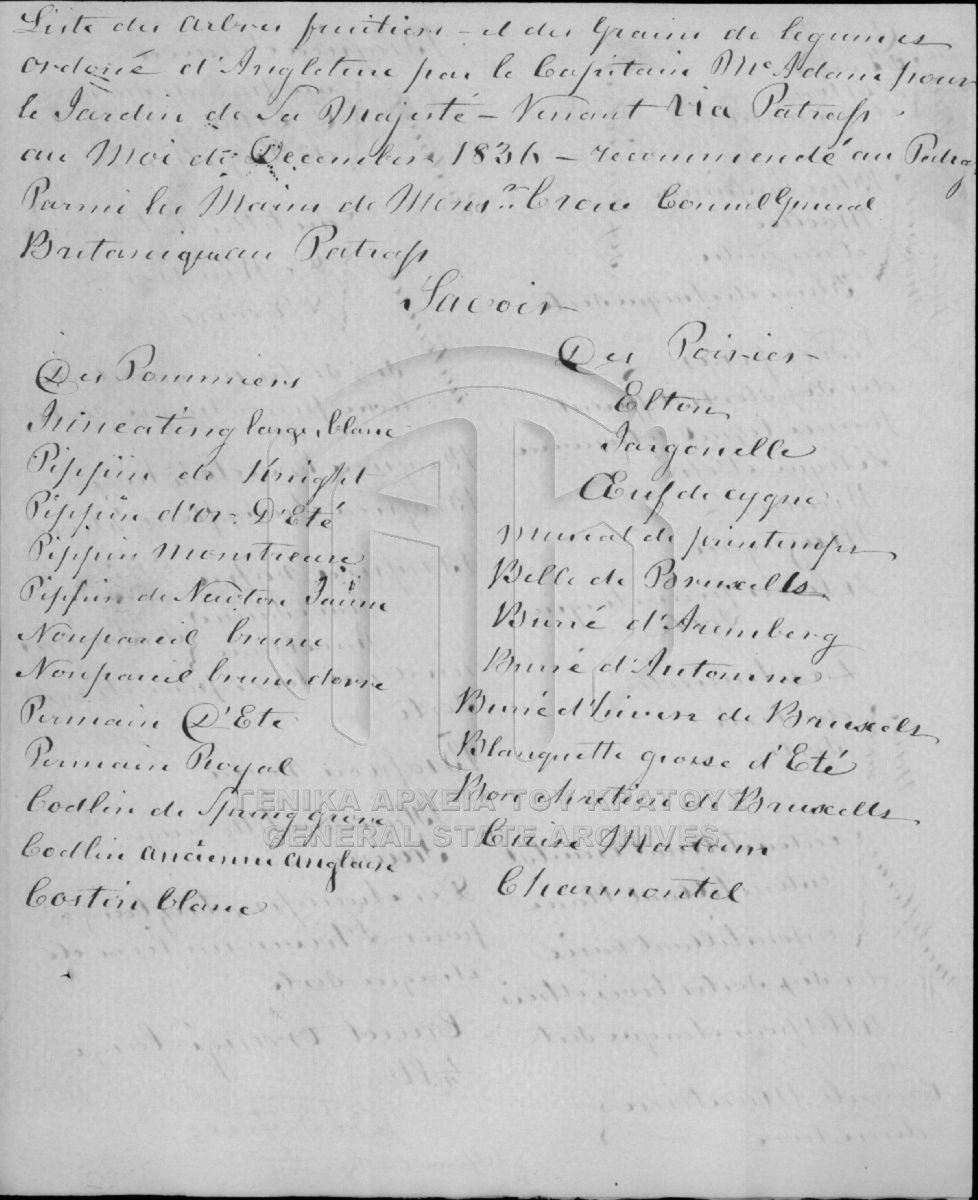 Liste des arbres fruitiers – et des Grains de legumes
ordoné d'Angleterre par le Capitain Mc Adam pour
le Jardin de Sa Majesté – Venant Via Patrass
au Moi de December 1836 – recommendé au Patras
Parmi les Mains de Monsr. Crow Consul General
Britanique au Patrass
Savoir
Des Pommiers
large blanc
Pippin de Knight
Pippin d'or D'Eté
Pippin Monstreuse
Pippin de Newton Jaune
Nonpareil brune
Nonpareil brune dorre
Permain D'Ete
Permain Royal
Codlin de Spring grove
Codlin ancienne anglaise
Costin blanc
Des Poirier
Elton
Jargonelle
Œuf de cygne
Muscat de printemps
Belle de Bruxells
Burré d'Aremberg
Burré d'Automne
Burré d'hivers de Bruxells
Blanquette grosse d'Eté
Bon chretien de Bruxells
Madam
Charmontel
ΓΕΝΙΚΑ ΑΡΧΕΙΑ ΤΟΥ ΚΡΑΤΟΥΣ
GENERAL STATE ARCHIVES